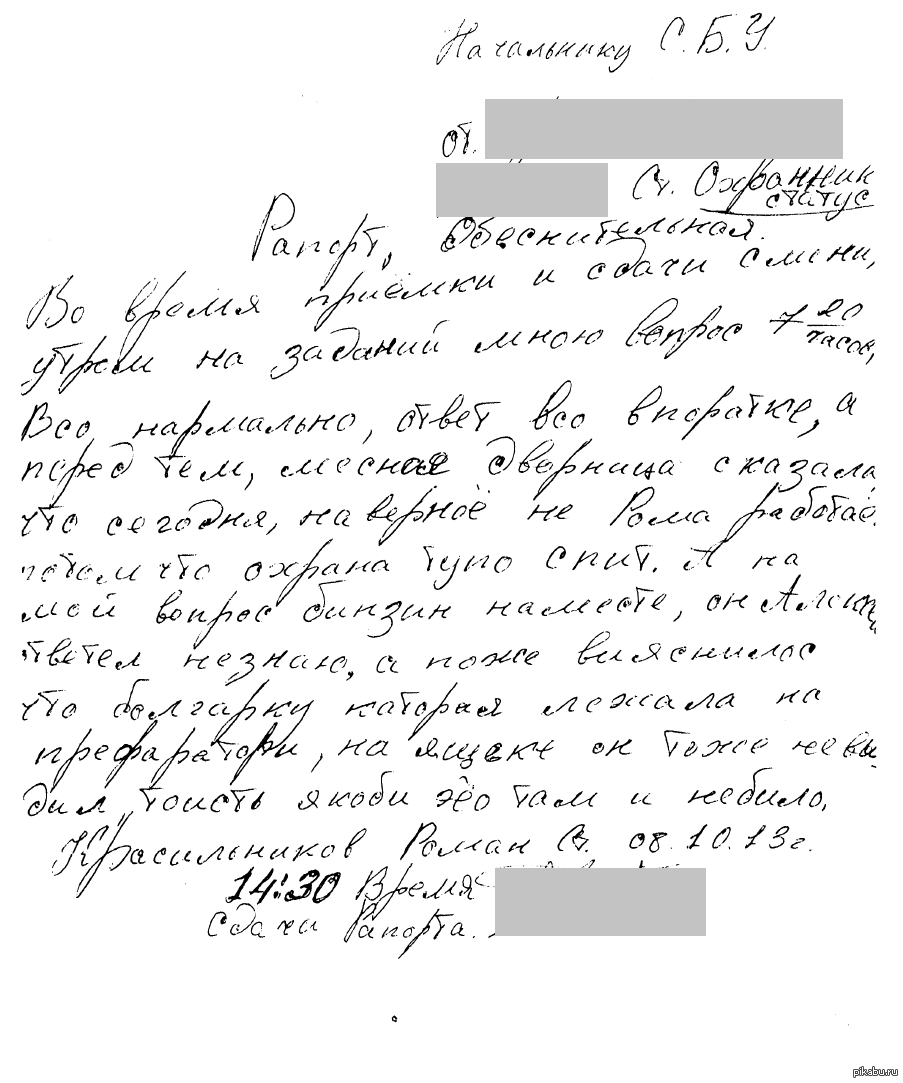 Начальнику С.Б.У.
от.
Ст. Охранник
статус
Рапорт, Обеснительная.
Во время приёмки и сдачи смени,
утрем на заданий мною вопрос 7 20 часов,
Всо нармально, ответ всо впоратке, а
перед тем, месная дверница сказала
что сегодня, наверноё не Рома работае.
потом что охрана тупо спит. А на
мой вопрос бинзин наместе, он
тветел незнаю, а поже вияснилос
что болгарку каторая лежала на
префаратори, на ящеке он тоже неви
дил, тоисть якоби эёо там и небило,
Красильников Роман Ст. 08.10.13г.
14:30 Время
Сдачи Рапорта.
pikabu.ru